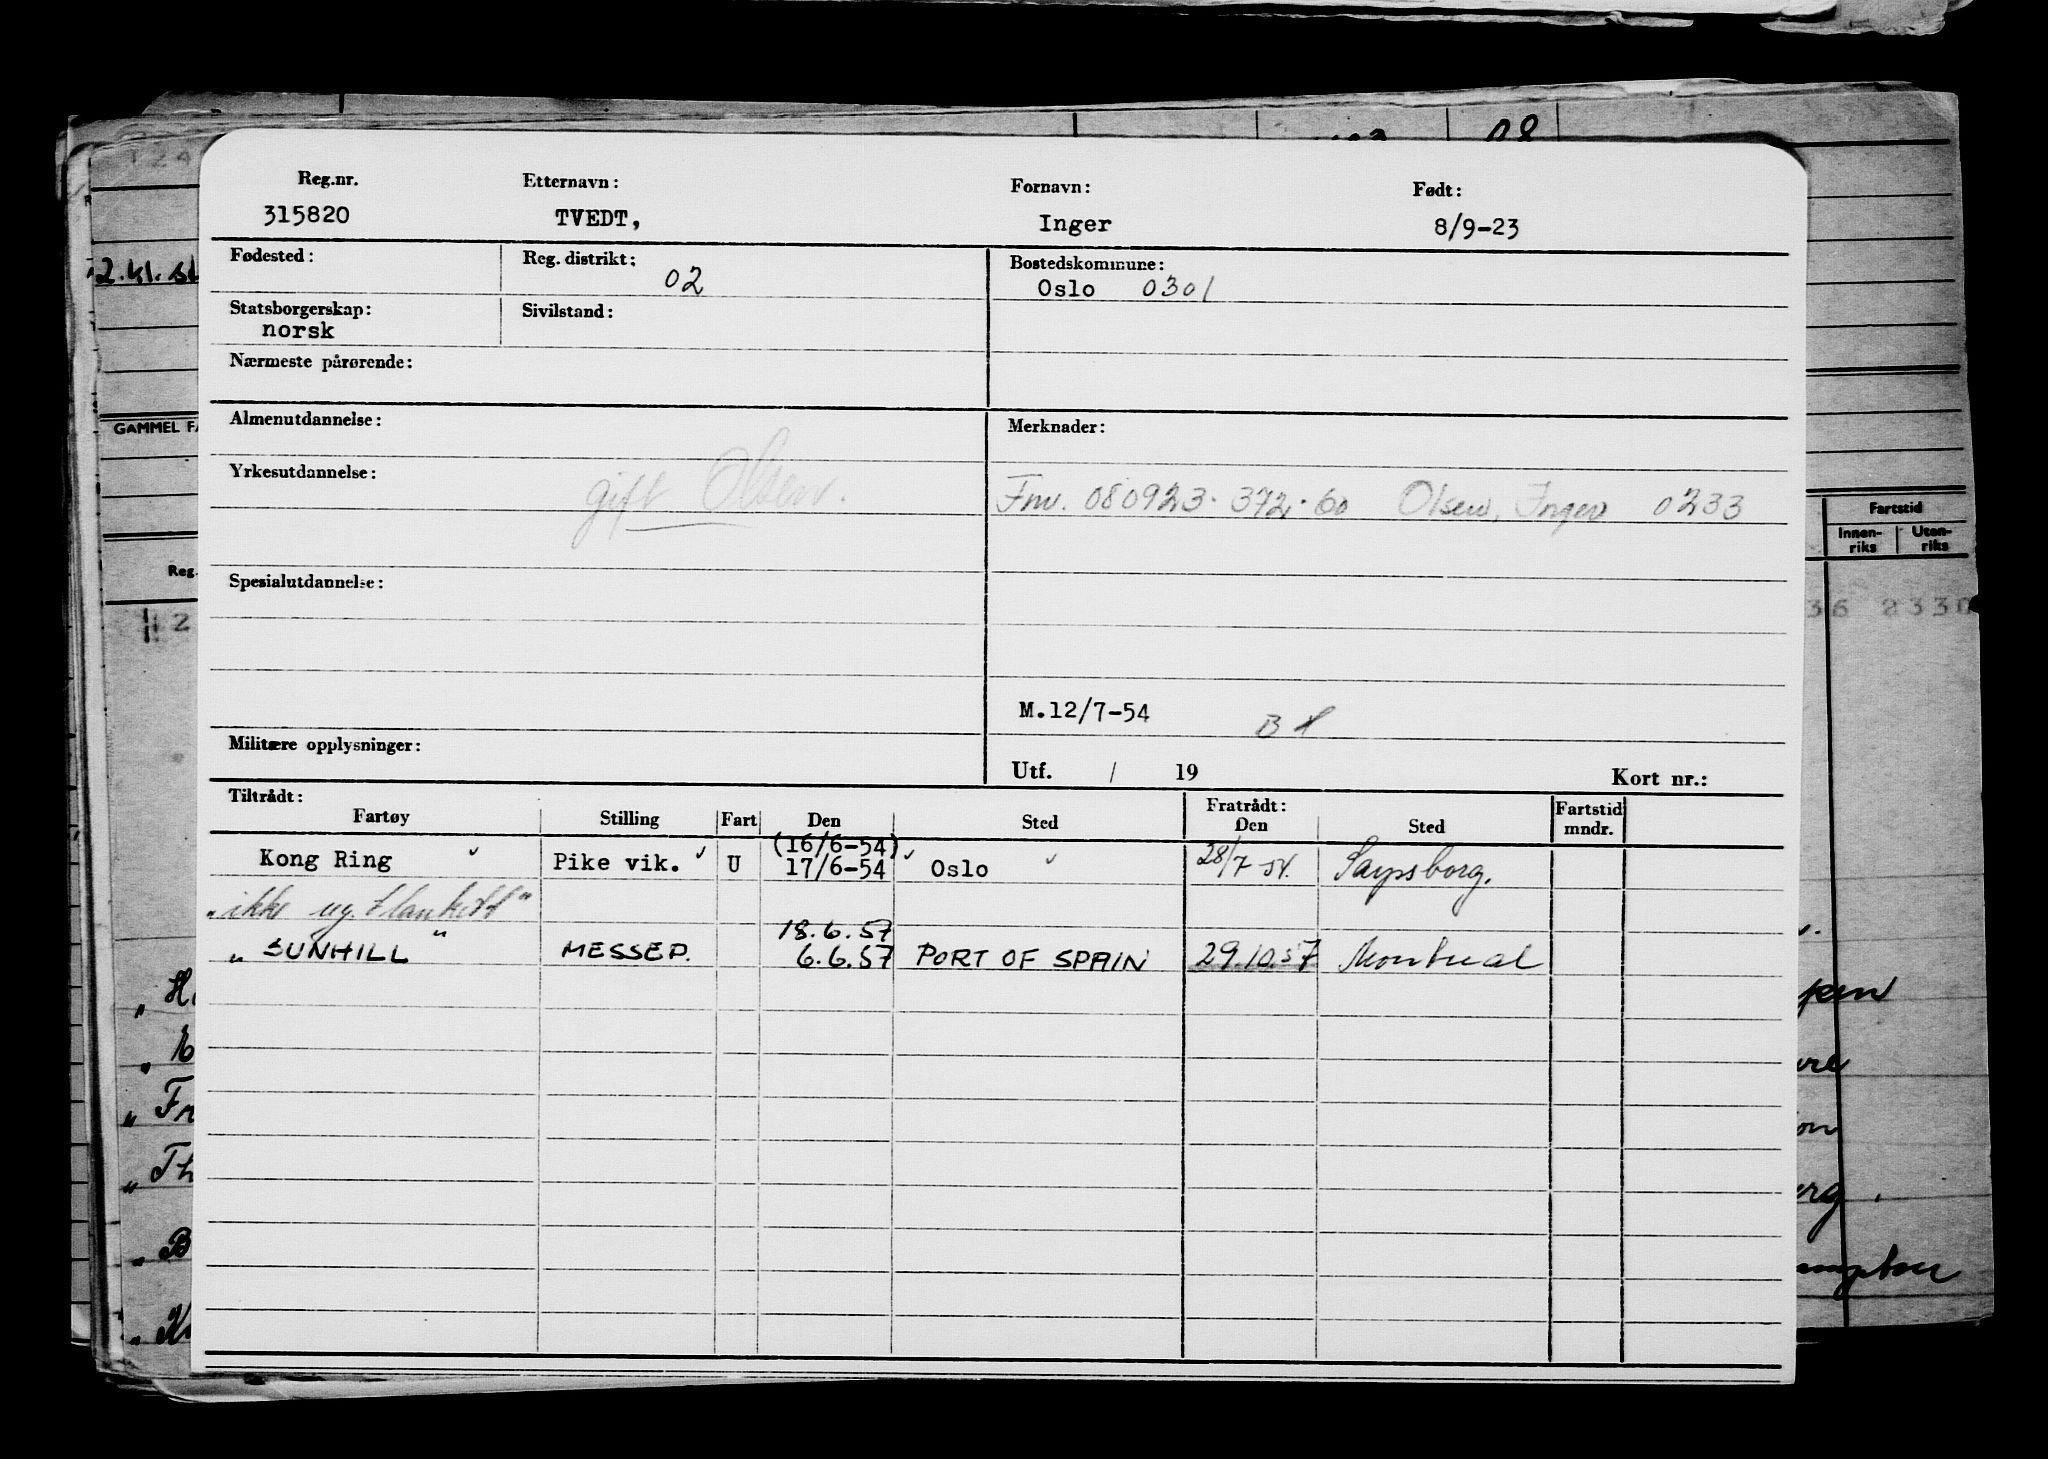 Reg.nr. Etternavn: Fornavn: Født:
315820 TVEDT, Inger 8/9-23
Fødested: Reg. distrikt: 02 Bostedskommune:
Oslo 0301
Statsborgerskap: Sivilstand:
norsk
Nærmeste pårørende:
Almenutdannelse: Merknader:
Yrkesutdannelse: gift Olsen. Fnr. 080923.372.60 Olsen, Inger 0233
Spesialutdannelse:
M.12/7-54 B
Militære opplysninger:
Utf. / 19 Kort nr.:
Tiltrådt: Fratrådt: Fartstid
Fartøy Stilling Fart Den Sted Den Sted mndr.
(16/6-54)
Kong Ring Pike vik. U 17/6-54 Oslo 28/7 54. Sarpsborg.
"ikke
18.6.57
"SUNHILL" MESSEP. 6.6.57 PORT OF SPAIN 29.10.57 Montreal
08
2.kl.
GAMMEL
Fartstid
Innen-
riks
Uten-
riks
Reg.
36 2330